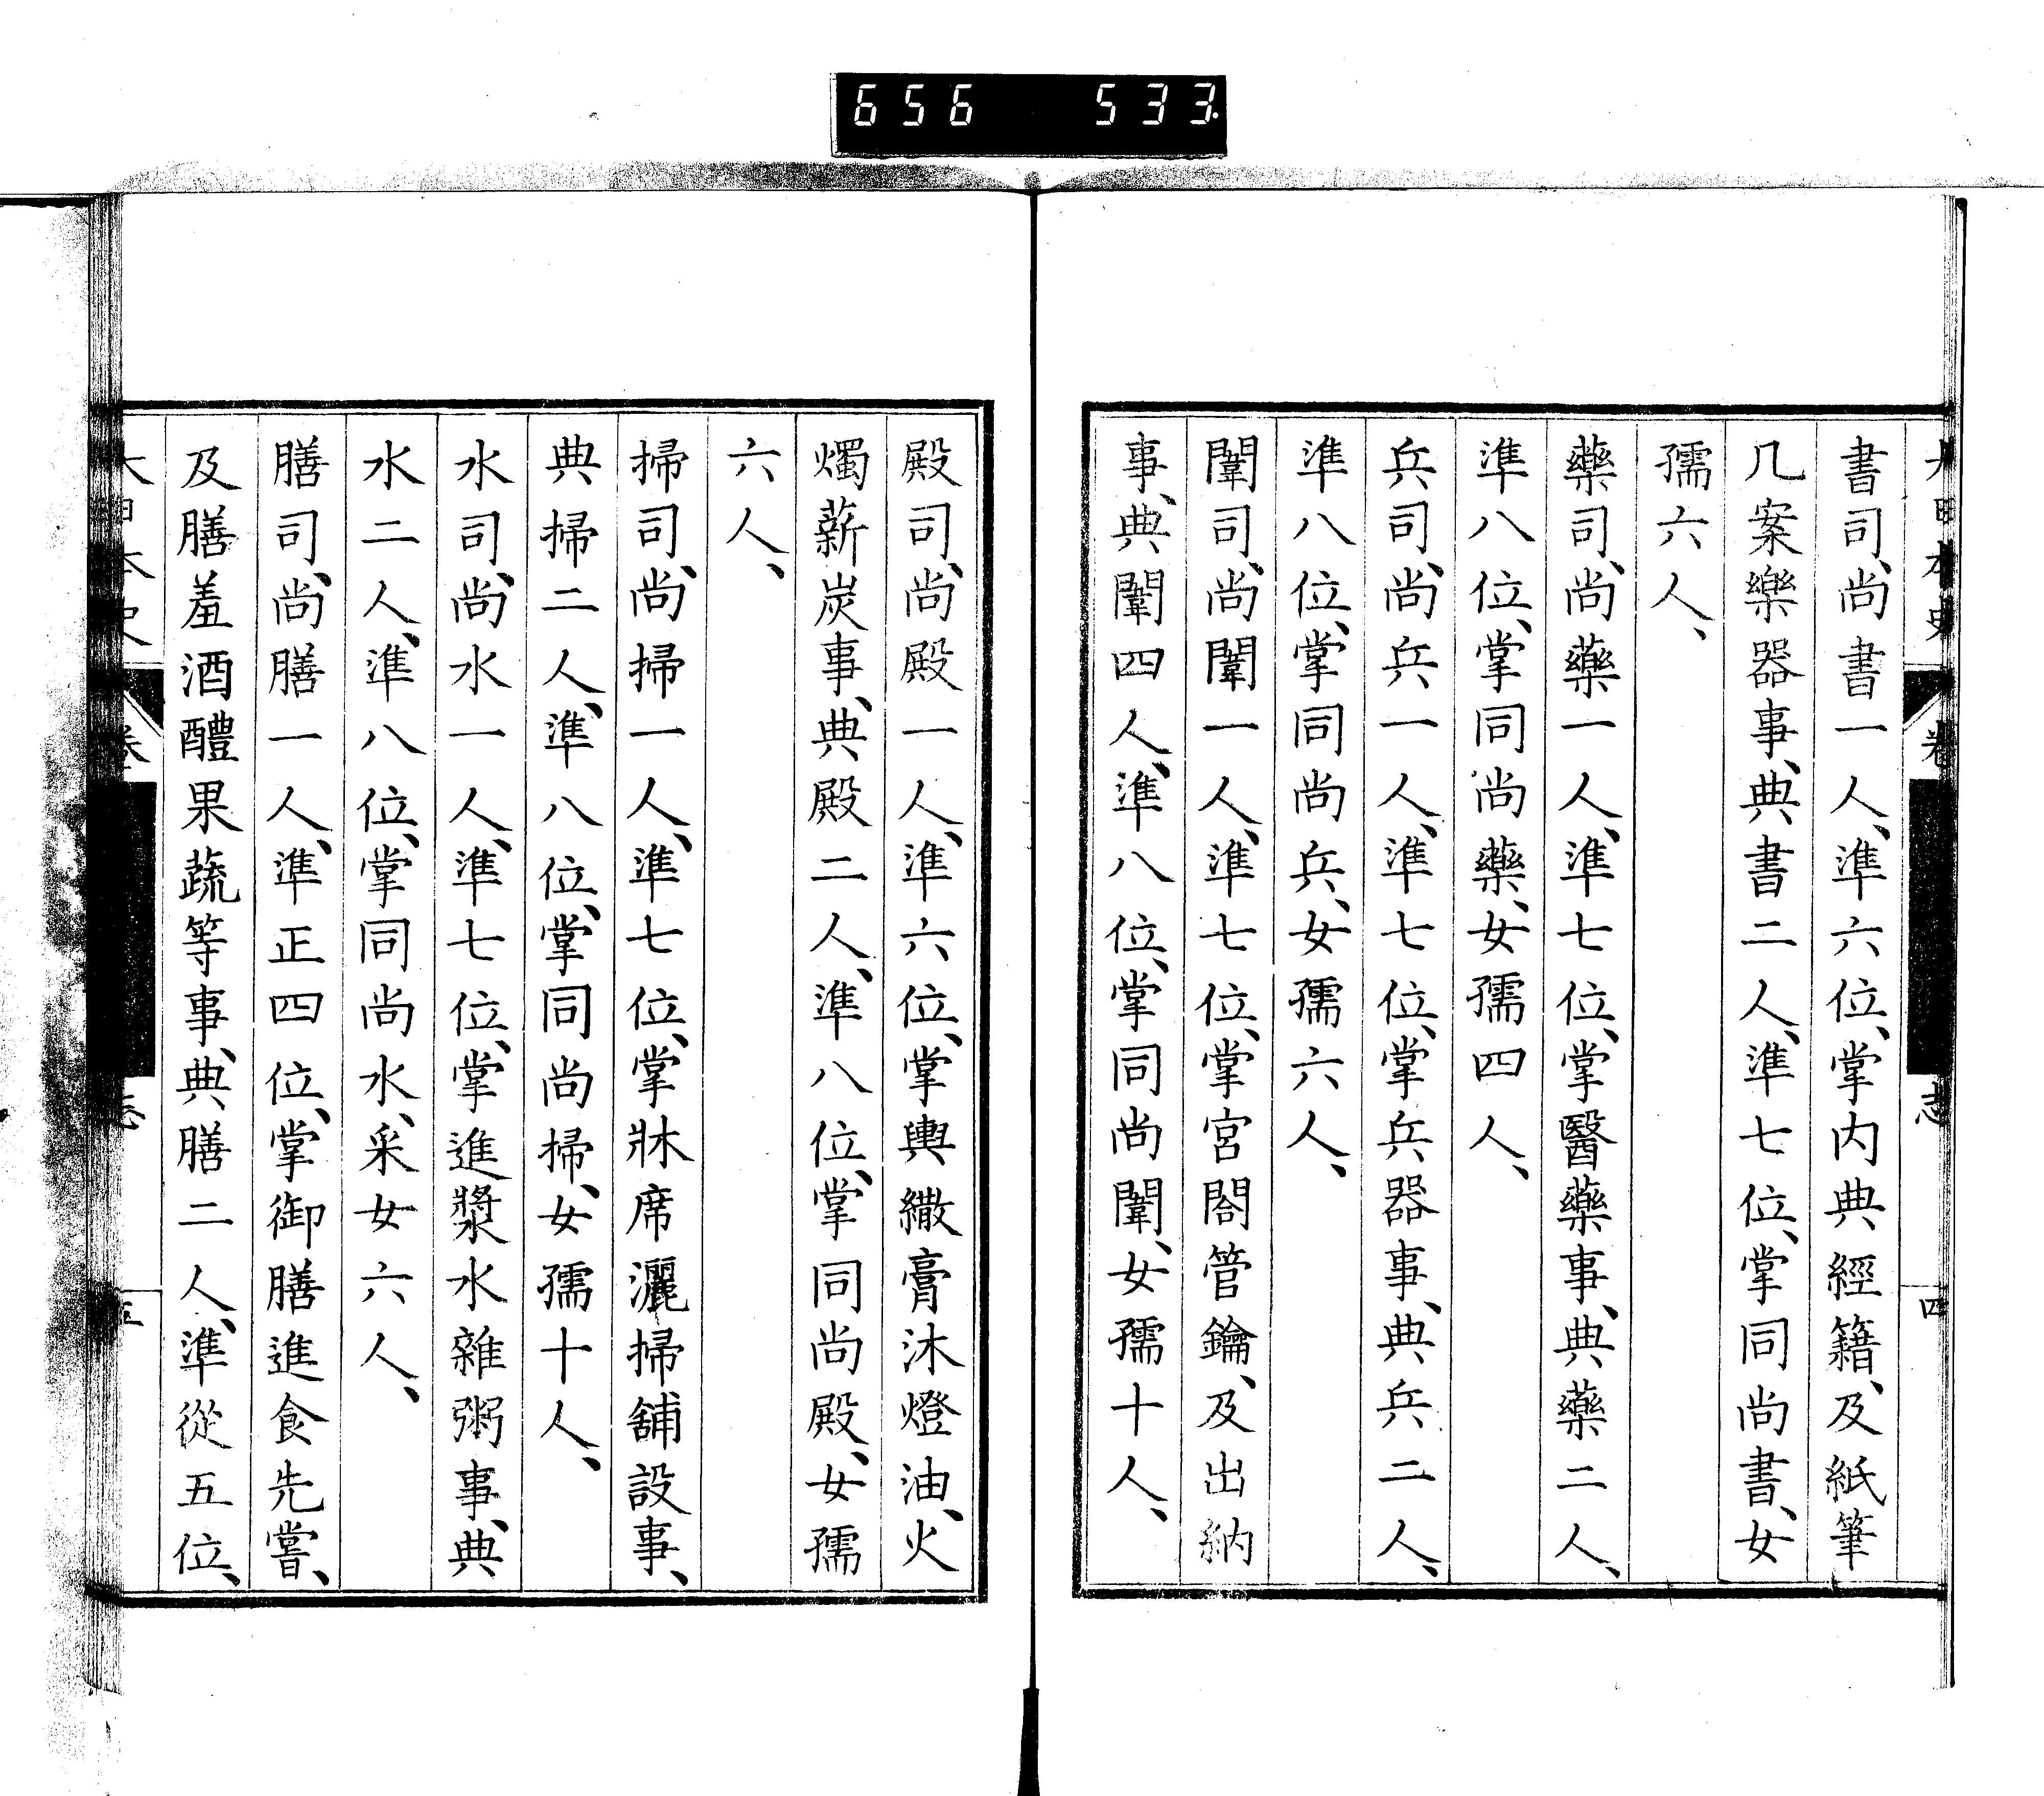 656 533
書司、尚書一人、準六位、掌内典經籍、及紙筆
几案樂器事、典書二人、準七位、掌同尚書、女
孺六人、
藥司、尚藥一人、準七位、掌醫藥事、典藥二人、
準八位、掌同尚藥、女孺四人、
兵司、尚兵一人、準七位、掌兵器事、典兵二人、
準八位、掌同尚兵、女孺六人、
闈司、尚闈一人、準七位、掌宮閤管鑰、及出納
事、典闈四人、準八位、掌同尚闈、女孺十人、
殿司、尚殿一人、準六位、掌輿繖膏沐燈油、火
燭薪炭事、典殿二人、準八位、掌同尚殿、女孺
六人、
掃司、尚掃一人、準七位、掌牀席灑掃鋪設事、
典掃二人、準八位、掌同尚掃、女孺十人、
水司、尚水一人、準七位、掌進漿水雜粥事、典
水二人、準八位、掌同尚水、采女六人、
膳司、尚膳一人、準正四位、掌御膳進食先嘗、
及膳羞酒醴果蔬等事、典膳二人、準從五位、